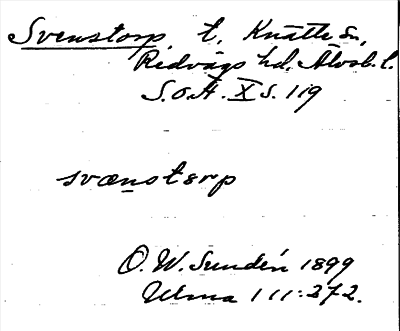 Svenstorp t. Knätte sn,
Redvägs hd. Älvsb. l.
S.O.Ä. X s. 119
svænstɐrp
O. W. Sundén 1899
Ulma 111:272.